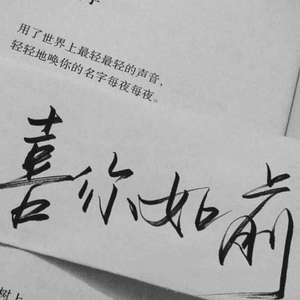 用了世界上最轻最轻的声音，
轻轻地唤你的名字每夜每夜。
喜你如前
树上